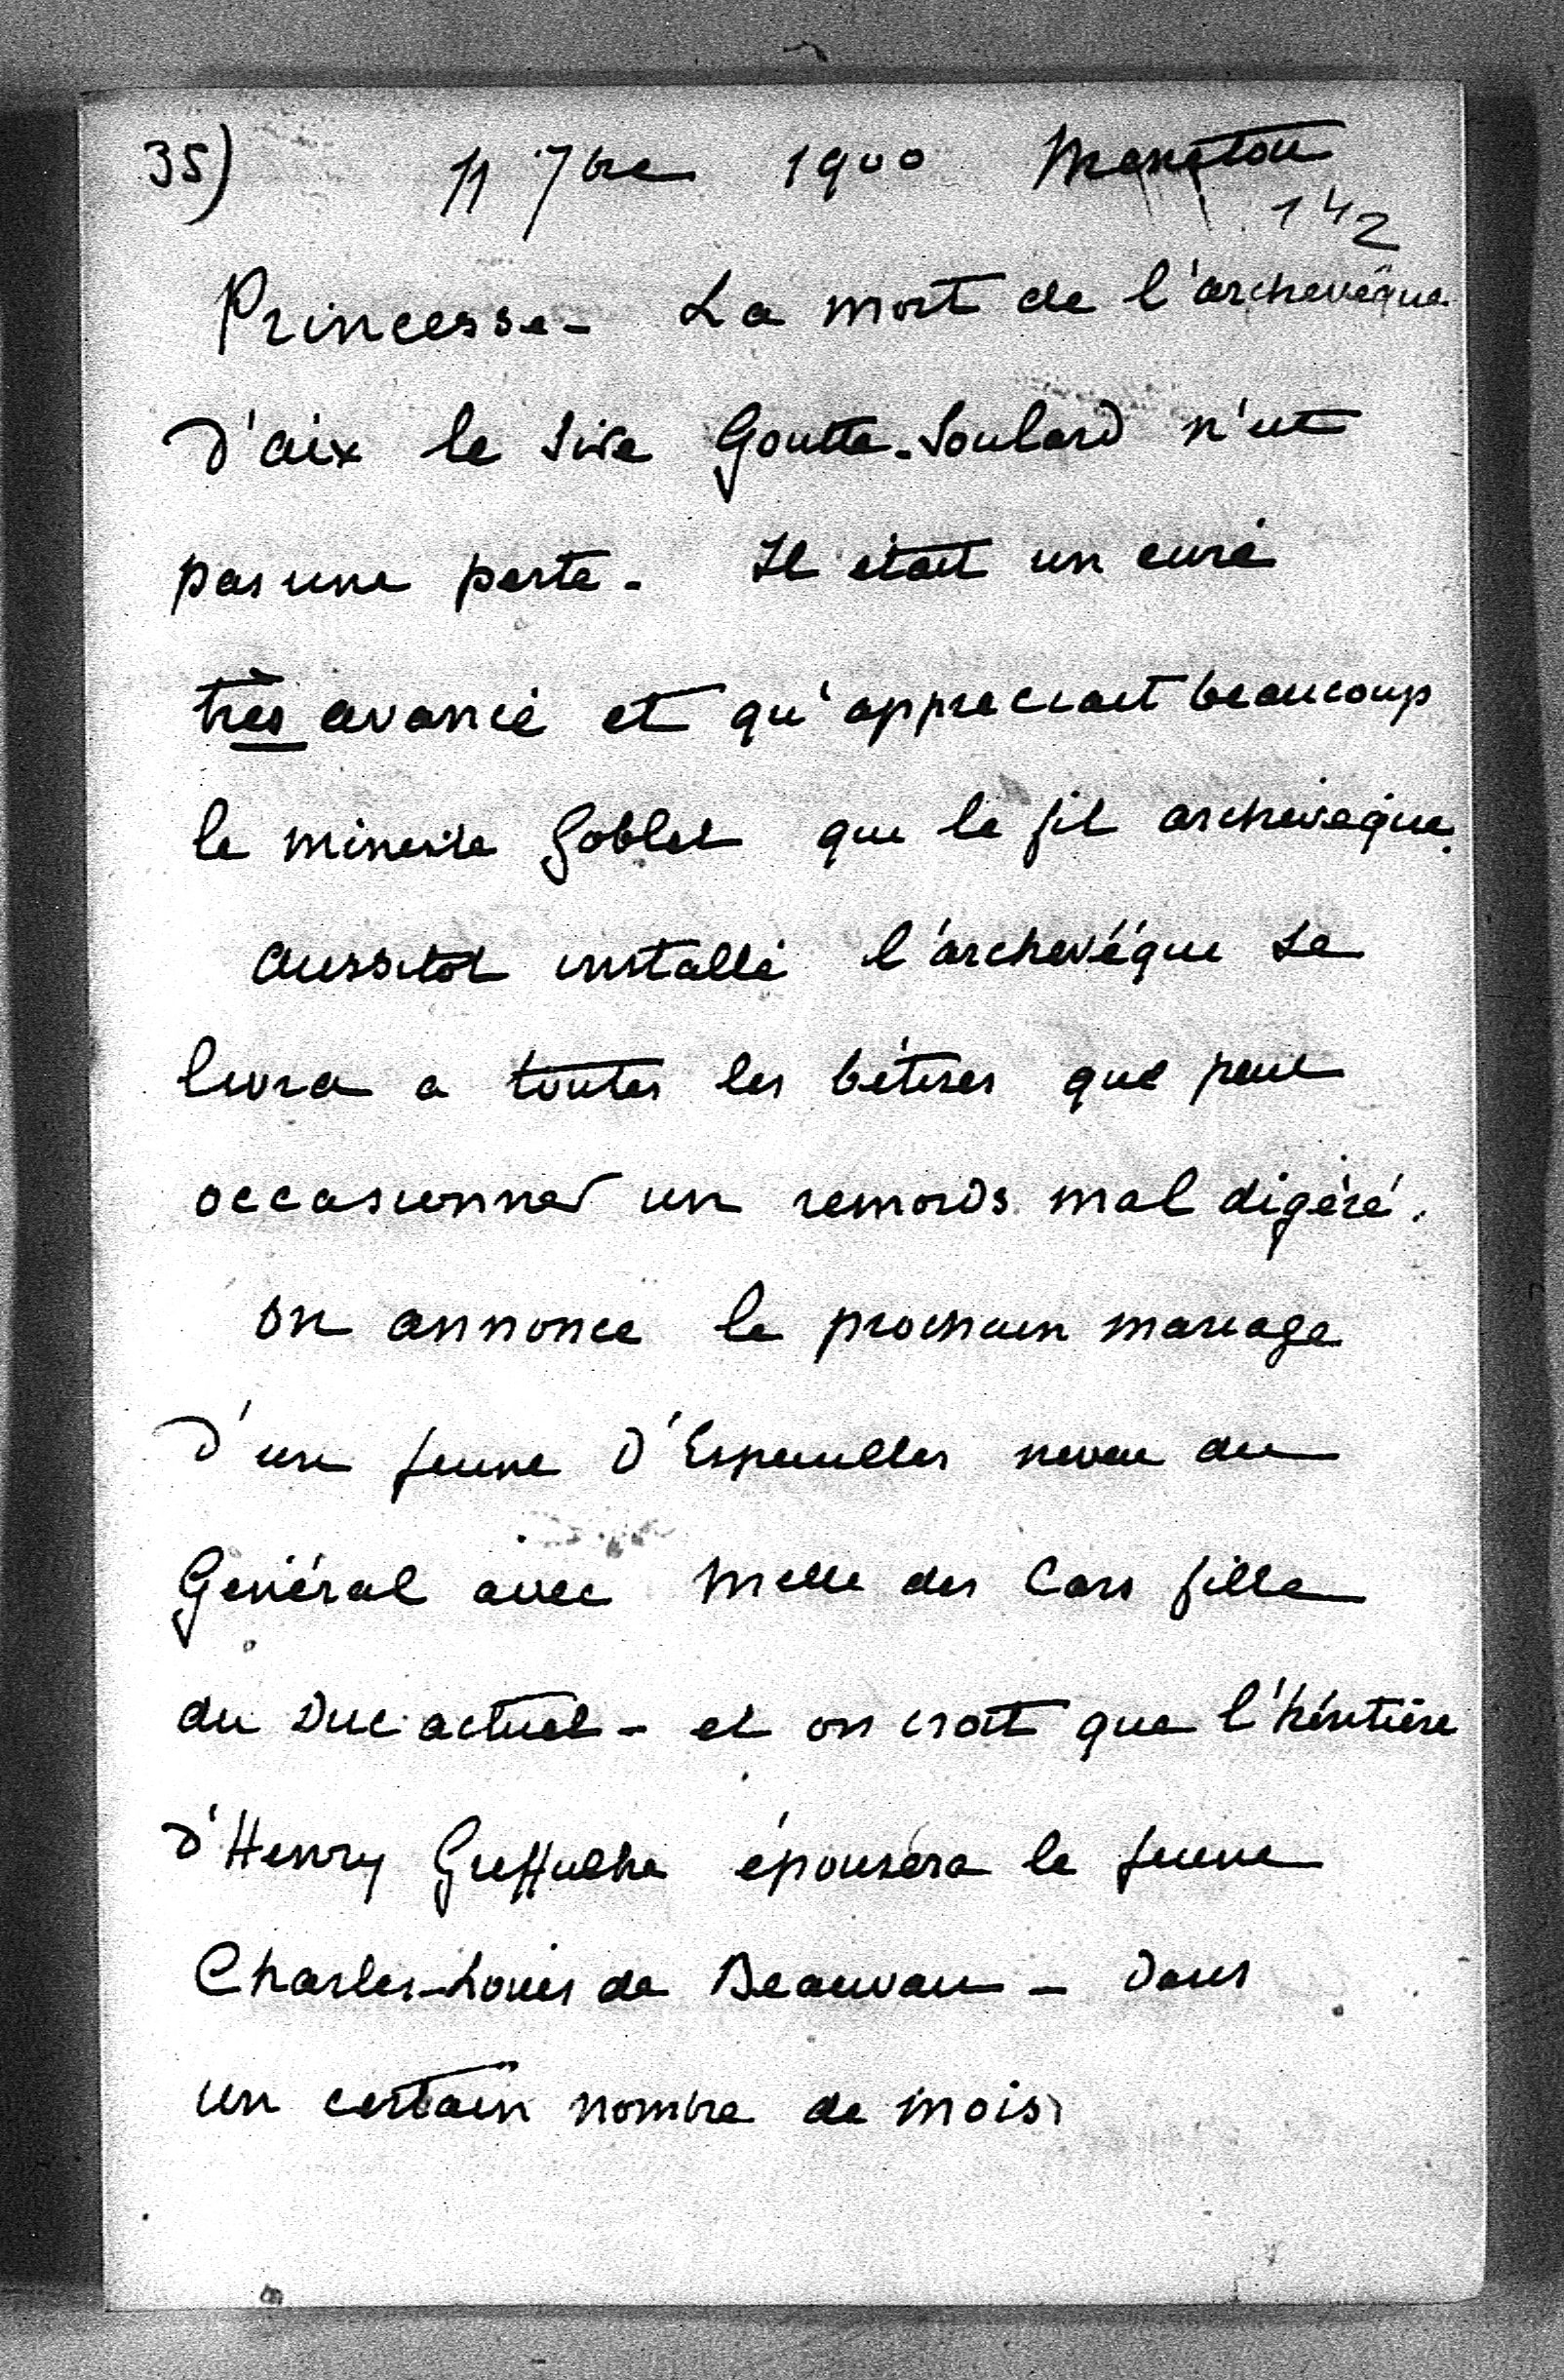 35) 11 7bre 1900 Menetou
142
Princesse - La mort de l'archevêque
d'aix le sire Goutte-Soulard n'est
pas une perte. Il était un curé
très avancé et qu'appreciait beaucoup
le ministre Goblet que le fit archevêque.
Aussitot installé l'archevêque se
livra a toutes les bêtises que peut
occasionner un remords mal digéré.
on annonce le prochain mariage
d'un jeune d'Espeuilles neveu du
Général avec Melle des Cars fille
du Duc actuel - et on croit que l'héritière
d'Henry Greffulhe épousera le jeune
Charles-Louis de Beauvau - dans
un certain nombre de mois